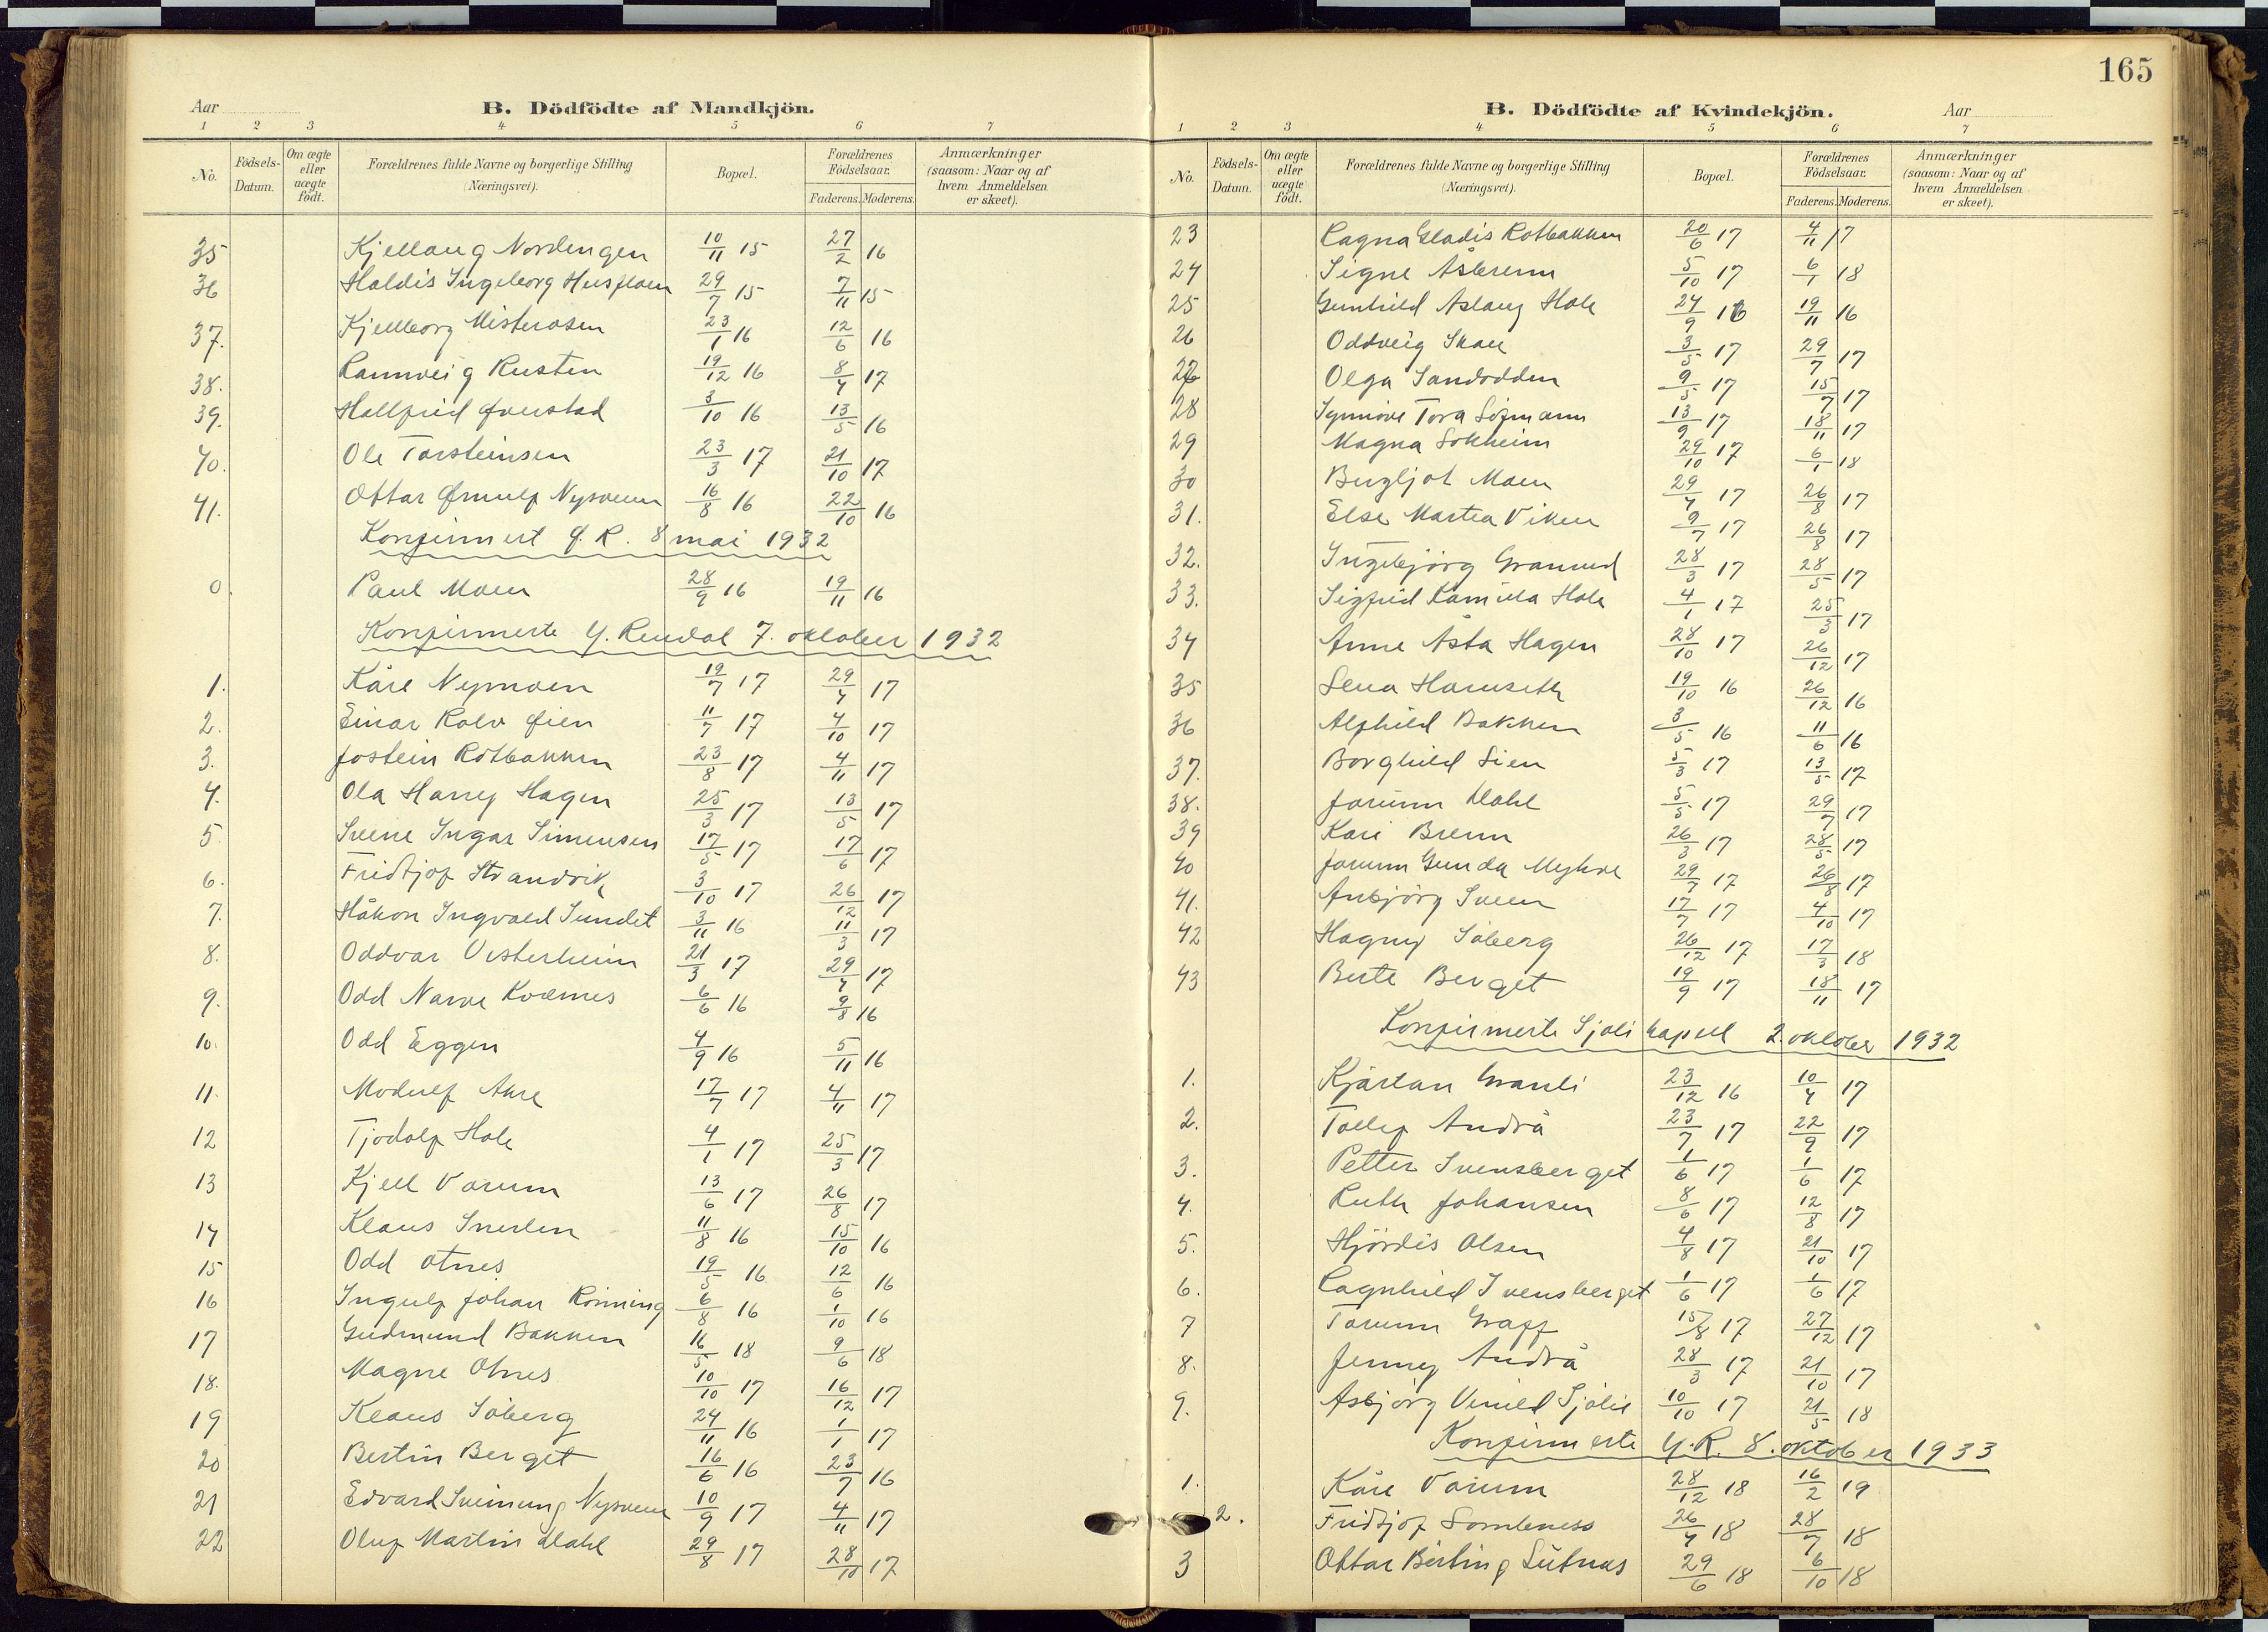 165
Aar
B. Dödfödte af Mandkjön.
1 2 3 4 5 6 7
No. Födsels-Datum. Om ægte eller uægte födt. Forældrenes fulde Navne og borgerlige Stilling (Næringsvei). Bopæl. Forældrenes Födselsaar. Faderens. Moderens. Anmærkninger (saasom: Naar og af hvem Anmeldelsen er skeet).
35 Kjellaug Nordengen 10/11 15 27/2 16
36 Haldis Ingeborg Husfloen 29/7 15 7/11 15
37. Kjellborg Misterosen 23/1 16 12/6 16
38. Rannveig Rusten 19/12 16 8/4 17
39. Hallfrid Øverstad 3/10 16 13/5 16
40. Ole Torsteinsen 23/3 17 21/10 17
41. Ottar Ørnulf Nysveen 16/8 16 22/10 16
Konfirmert Ø. R. 8 mai 1932
0. Paul Moen 28/9 16 19/11 16
Konfirmerte Y. Rendal 7. oktober 1932
1. Kåre Nymoen 19/7 17 29/4 17
2. Einar Rolv Øien 11/7 17 4/10 17
3. Jostein Rotbakken 23/8 17 4/11 17
4. Ola Harry Hagen 25/3 17 13/5 17
5 Svene Ingar Simensen 17/5 17 17/6 17
6. Fridtjof Strandvik 3/10 17 26/12 17
7. Håkon Ingvald Sundet 3/11 16 11/3 17
8. Oddvar Vesterheim 21/3 17 29/4 17
9. Odd Narve Kværnes 6/6 16 9/8 16
10. Odd Eggen 4/9 16 5/11 16
11. Modulf Akre 17/7 17 4/11 17
12 Tjodolf Hole 4/1 17 25/3 17
13 Kjell Vorum 13/6 17 26/8 17
14 Klaus Snerlen 11/8 16 15/10 16
15 Odd Otnes 19/5 16 12/6 16
16 Ingulf Johan Rönning 6/8 16 1/10 16
17 Gudmund Bakken 16/5 18 9/6 18
18. Magne Otnes 10/10 17 16/12 17
19 Klaus Söberg 24/11 16 1/1 17
20 Bertin Berget 16/6 16 23/7 16
21 Edvard Sveinung Nysveen 10/9 17 4/11 17
22 Oluf Martin Dahl 29/8 17 28/10 17
B. Dödfödte af Kvindekjön.
Aar
1 2 3 4 5 6 7
No. Födsels-Datum. Om ægte eller uægte födt. Forældrenes fulde Navne og borgerlige Stilling (Næringsvei). Bopæl. Forældrenes Födselsaar. Faderens. Moderens. Anmærkninger (saasom: Naar og af hvem Anmeldelsen er skeet).
23 Ragna Gladis Rotbakken 20/6 17 4/11 17
24 Signe Åsbrenn 5/10 17 6/1 18
25 Gunhild Aslaug Hole 24/9 16 19/11 16
26 Oddveig Skou 3/5 17 29/7 17
27 Olga Sandodden 9/5 17 15/7 17
28 Synnöve Tora Sozmann 13/9 17 18/11 17
29 Magna Solheim 29/10 17 6/1 18
30 Bergljot Moen 29/4 17 26/8 17
31. Else Martea Viken 9/7 17 26/8 17
32. Ingebjörg Granrud 28/3 17 28/5 17
33. Sigfrid Kamilla Hole 4/1 17 25/3 17
34 Anne Åsta Hagen 28/10 17 26/12 17
35 Lena Hornseth 19/10 16 26/12 16
36 Alfhild Bakken 3/5 16 11/6 16
37. Borghild Lien 5/3 17 13/5 17
38. Jorunn Dahl 5/5 17 29/7 17
39 Kari Brenn 26/3 17 28/5 17
40 Jorunn Gunda Myhre 29/7 17 26/8 17
41. Anbjörg Sveen 17/7 17 4/10 17
42 Hagny Söberg 26/12 17 17/3 18
43 Berte Berget 19/9 17 18/11 17
Konfirmerte Sjöli kapell 2. oktober 1932
1. Kjartan Granli 23/12 16 10/4 17
2. Tollef Andrå 23/7 17 22/9 17
3. Petter Svensberget 1/6 17 1/6 17
4. Ruth Johansen 8/6 17 12/8 17
5. Hjördis Olsen 4/8 17 21/10 17
6. Ragnhild Svensberget 1/6 17 1/6 17
7 Torunn Graff 15/8 17 27/12 17
8. Jenny Andrå 28/3 17 21/10 17
9. Asbjörg Venild Sjölie 10/10 17 21/5 18
Konfirmerte Y. R. 8. oktober 1933
1. Kåre Vorum 28/12 18 16/2 19
2. Fridtjof Lomleness 26/4 18 28/7 18
3 Ottar Berting Lutnes 29/6 18 6/10 18